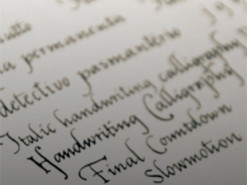 a permanenta
detectivo pasmanterie
Italic handwriting calligraphy
Handwriting Calligraphy
Final Countdown
Slowmotion